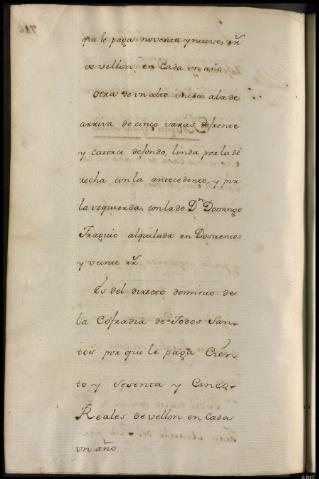 que le paga noventa y nueve, rr.
de vellon, en Cada un año
Otra de un alto unida ala de
arriva de cinco varas de frente
y catorce de fondo, linda por la de
recha con la antecedente, y por
la yzquierda, con la de Dn. Domingo
alquilada en Doscientos
y veinte rr.
Es del directo dominio de
la Cofradia de Todos San-
tos por que le paga Cien-
to y Sesenta y Cinco
Reales de vellon en Cada
un año